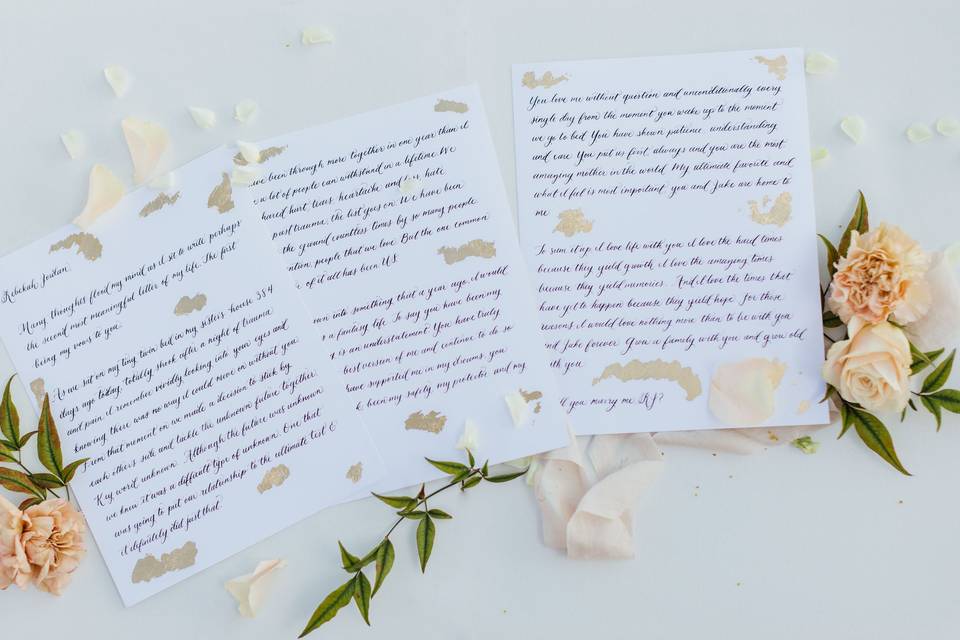 Rebekah Jordan
Many thoughts flood my mind as it sit to write perhaps
the second most meaningful letter of my life. The first
being my vows to you.
As we sat on my tiny twin bed in my sisters house 384
days ago today, totally shook after a night of trauma
and pain, it remember vividly, looking into your eyes and
knowing there was no way it could move on without you
From that moment on we made a decision to stick by
each others side and tackle the unknown future together
Key word, unknown. Although the future was unknown
we knew it was a difficult type of unknown. One that
was going to put our relationship to the ultimate test &
it definitely did just that.
been through more together in one year than it
a lot of people can withstand in a lifetime. We
hared hurt, tears, heartache and hate
past trauma, the list goes on. We have been
the ground countless times by so many people
ntion, people that we love. But the one common
of it all has been US.
into something that a year ago, it would
a fantasy life. To say you have been my
is an understatement. You have truly
best version of me and continue to do so
have supported me in my dreams, you
been my safety, my protector and my
You love me without question and unconditionally every
single day from the moment you wake up to the moment
we go to bed. You have shown patience, understanding
and care. You put us first, always and you are the most
amazing mother in the world. My ultimate favorite and
what it feel is most important, you and Jake are home to
me
To sum it up, it love life with you, it love the hard times
because they yield growth, it love the amazing times
because they yield memories. And it love the times that
have yet to happen because they yield hope. For those
reasons, it would love nothing more than to be with you
and Jake forever. Grow a family with you and grow old
th you.
l you marry me RJ?